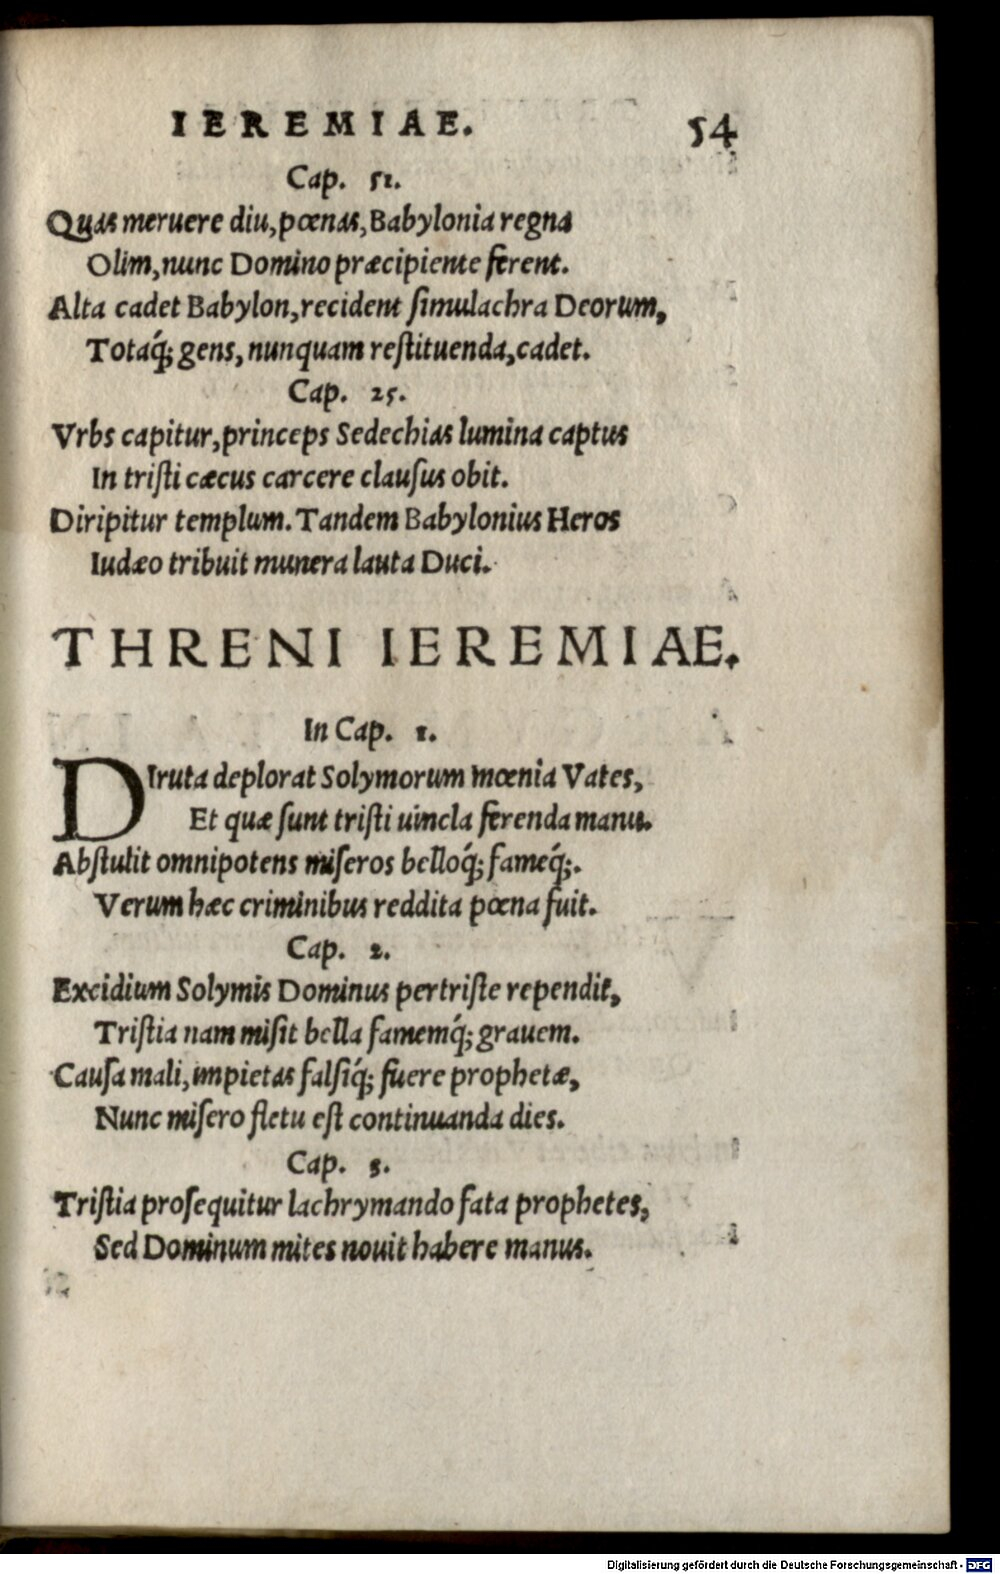 IEREMIAE. 54
Cap. 51.
Quas meruere diu, pœnas, Babylonia regna
Olim, nunc Domino præcipiente ferent.
Alta cadet Babylon, recident ſimulachra Deorum,
Totaq́; gens, nunquam reſtituenda, cadet.
Cap. 25.
Vrbs capitur, princeps Sedechias lumina captus
In triſti cæcus carcere clauſus obit.
Diripitur templum. Tandem Babylonius Heros
Iudæo tribuit munera lauta Duci.
THRENI IEREMIAE.
In Cap. 1.
DIruta deplorat Solymorum mœnia Vates,
Et quæ ſunt triſti uincla ferenda manu.
Abſtulit omnipotens miſeros belloq́; fameq́;.
Verum hæc criminibus reddita pœna fuit.
Cap. 2.
Excidium Solymis Dominus pertriſte rependit,
Triſtia nam miſit bella famemq́; grauem.
Cauſa mali, impietas falſiq́; fuere prophetæ,
Nunc miſero fletu eſt continuanda dies.
Cap. 3.
Triſtia proſequitur lachrymando fata prophetes,
Sed Dominum mites nouit habere manus.
Digitalisierung gefördert durch die Deutsche Forschungsgemeinschaft - DFG